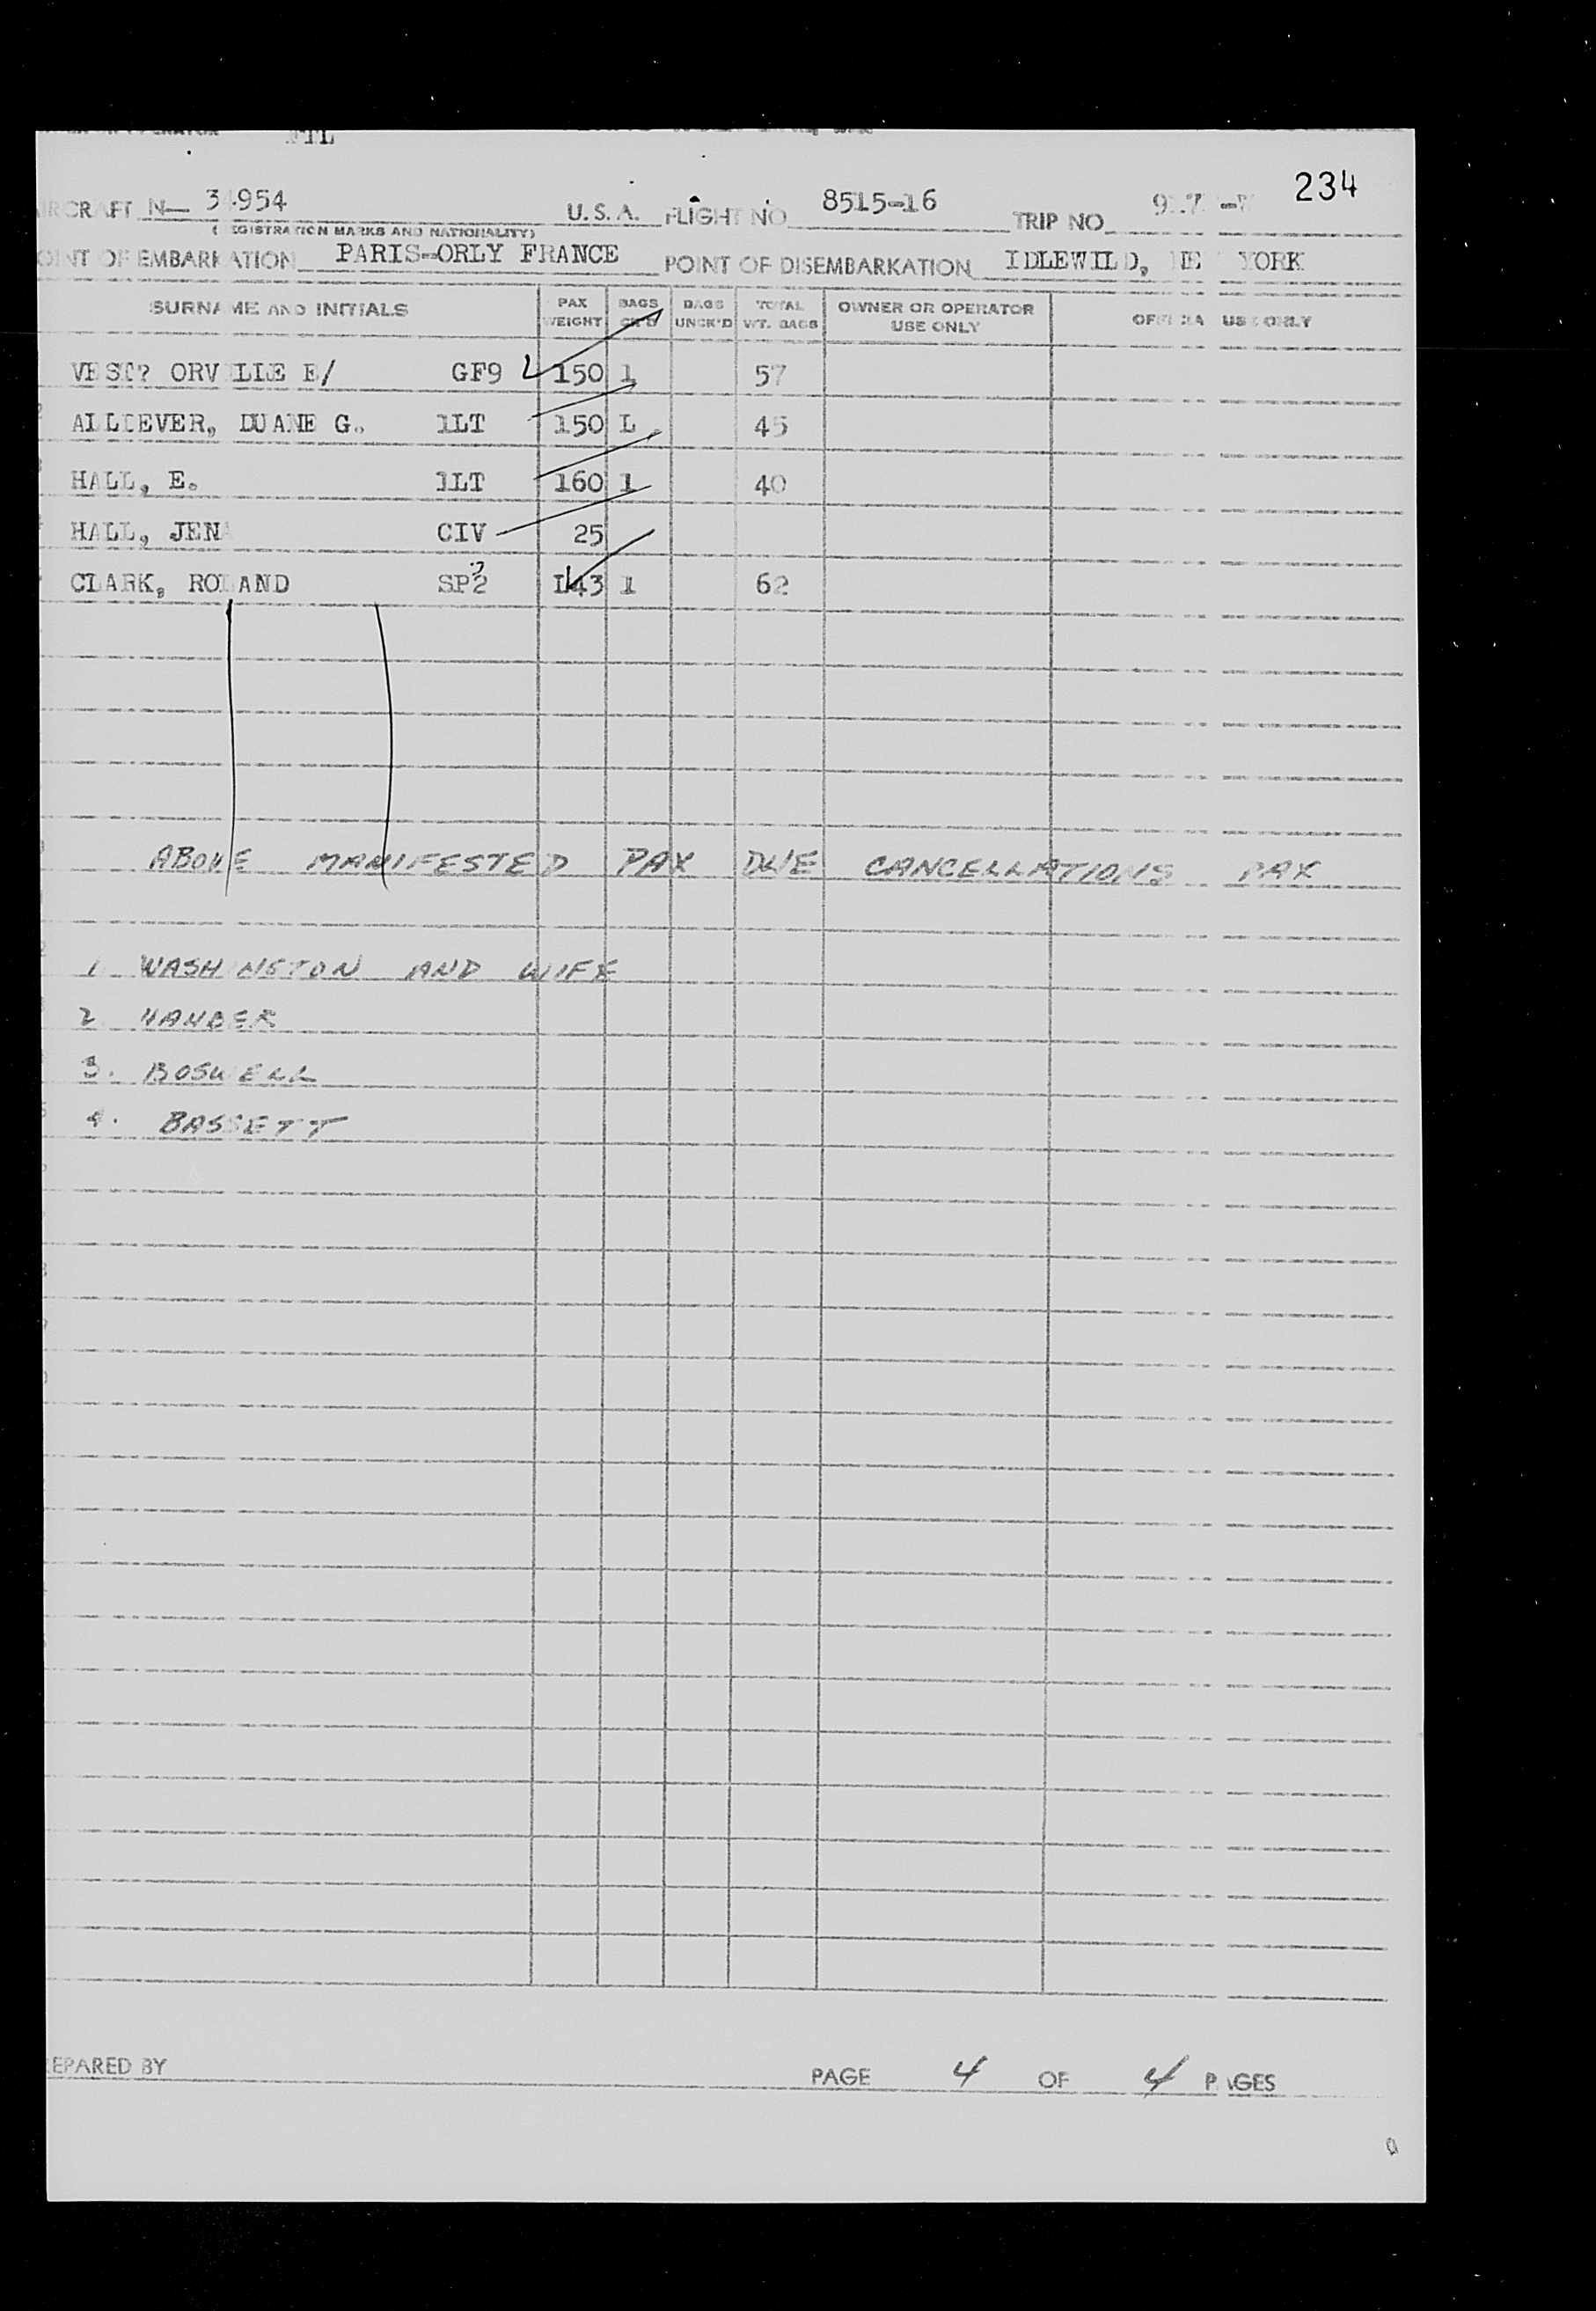 FTL
234
AIRCRAFT N— 34954 U.S.A. FLIGHT NO 8515-16 TRIP NO
(REGISTRATION MARKS AND NATIONALITY)
POINT OF EMBARKATION PARIS-ORLY FRANCE POINT OF DISEMBARKATION IDLEWILD, NEW YORK
SURNAME AND INITIALS PAX WEIGHT BAGS CK'D BAGS UNCK'D TOTAL WT. BAGS OWNER OR OPERATOR USE ONLY OFFICIAL USE ONLY
VEST? ORVILLE E/ GF9 150 1 57
ALLIEVER, DUANE G. 1LT 150 L 45
HALL, E. 1LT 160 1 40
HALL, JENA CIV 25
CLARK, ROLAND SP2 143 1 62
ABOVE MANIFESTED PAX DUE CANCELLATIONS PAX
1 WASHINGTON AND WIFE
2
3. BOSWELL
4. BASSETT
PREPARED BY PAGE 4 OF 4 PAGES